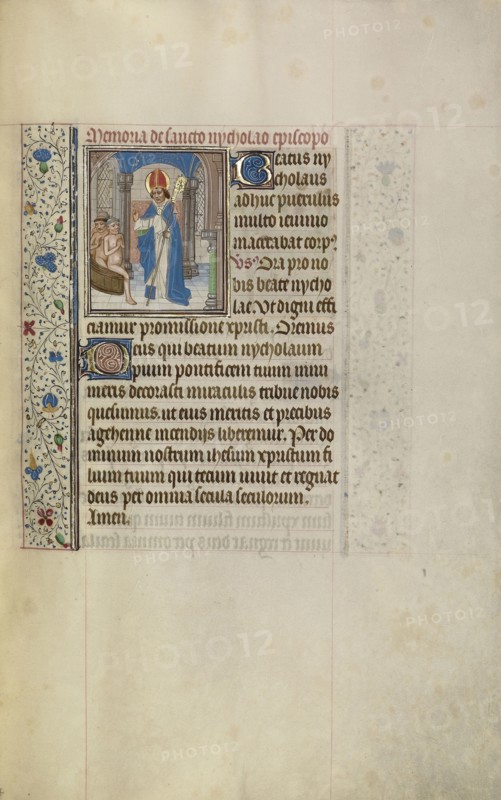 Memoria de sancto nycholao episcopo
Beatus ny
cholaus
adhuc puerulus
multo ieiunio
macerabat corpꝰ
vs. Ora pro no
bis beate nycho
lae. Vt digni effi
ciamur promissione xpristi. Oremus
Deus qui beatum nycholaum
pium pontificem tuum innu
meris decorasti miraculis tribue nobis
quesumus, ut eius meritis et precibus
agehenne incendijs liberemur. Per do
minum nostrum ihesum xpristum fi
lium tuum qui tecum uiuit et regnat
deus per omnia secula seculorum.
Amen.
PHOTO12